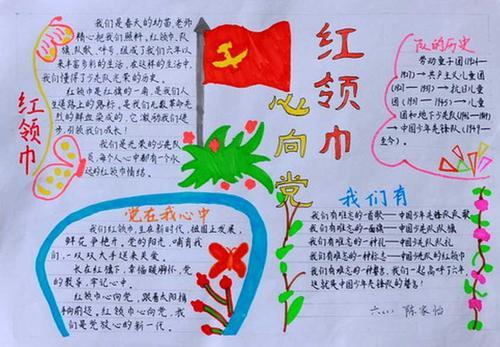 红领巾
心向党
红领巾
我们是春天的幼苗,老师
精心把我们照料。红领巾、队
旗、队歌、呼号,组成了我们六年以
来丰富多彩的生活,在这样的生活中
我们懂得了少先队光荣的历史。
红领巾是红旗的一角,是我们人
生道路上的路标,是我们无数革命先
烈的鲜血染成的,它激励我们进
步,引领我们成长!
我们是光荣的少先队
员,每个人心中都有一个永
远的红领巾情结。
队的历史
劳动童子团(1924—
1927)→共产主义儿童团
(1927—1937)→抗日儿童
团(1937—1945)→儿童
团和地下少先队(1945—1949)
→中国少年先锋队(1949—
至今)。
党在我心中
我们红领巾,生在新时代。祖国在发展,
鲜花争艳开。党的阳光,哺育我
们,一双双大手送来关爱。
长在红旗下,幸福暖胸怀。党
的教导,牢记心中。
红领巾心向党,跟着太阳旗
手向前进。红领巾心向党,我
们是党放心的新一代。
我们有
我们有难忘的一首歌——中国少年先锋队队歌
我们有难忘的一面旗——中国少年先锋队队旗
我们有难忘的一种礼——中国少先队队礼
我们有难忘的一种标志——中国少先队的红领巾
我们有难忘的一种誓言,我们一起高呼了六年,
这就是中国少年先锋队的誓言!
陈家怡